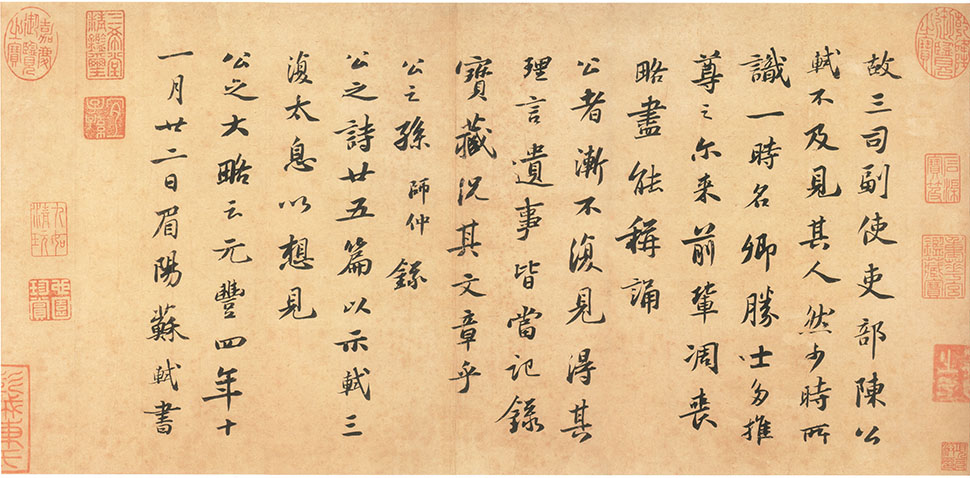 故三司副使吏部陳公
軾不及見其人然少時所
識一時名卿勝士多推
尊之尔来前輩凋喪
略盡能稱誦
公者漸不復見得其
理言遺事皆當記錄
寶藏況其文章乎
公之孫師仲錄
公之詩廿五篇以示軾三
復太息以想見
公之大略云元豐四年十
一月廿二日眉陽蘇軾書
嘉慶御覽之寶
三希堂精鑑璽
宜子孫